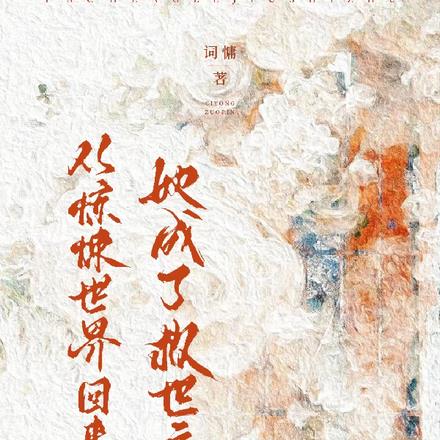 词慵
著
CIYONG
ZUOPIN
从惊悚世界回来
她成了救世